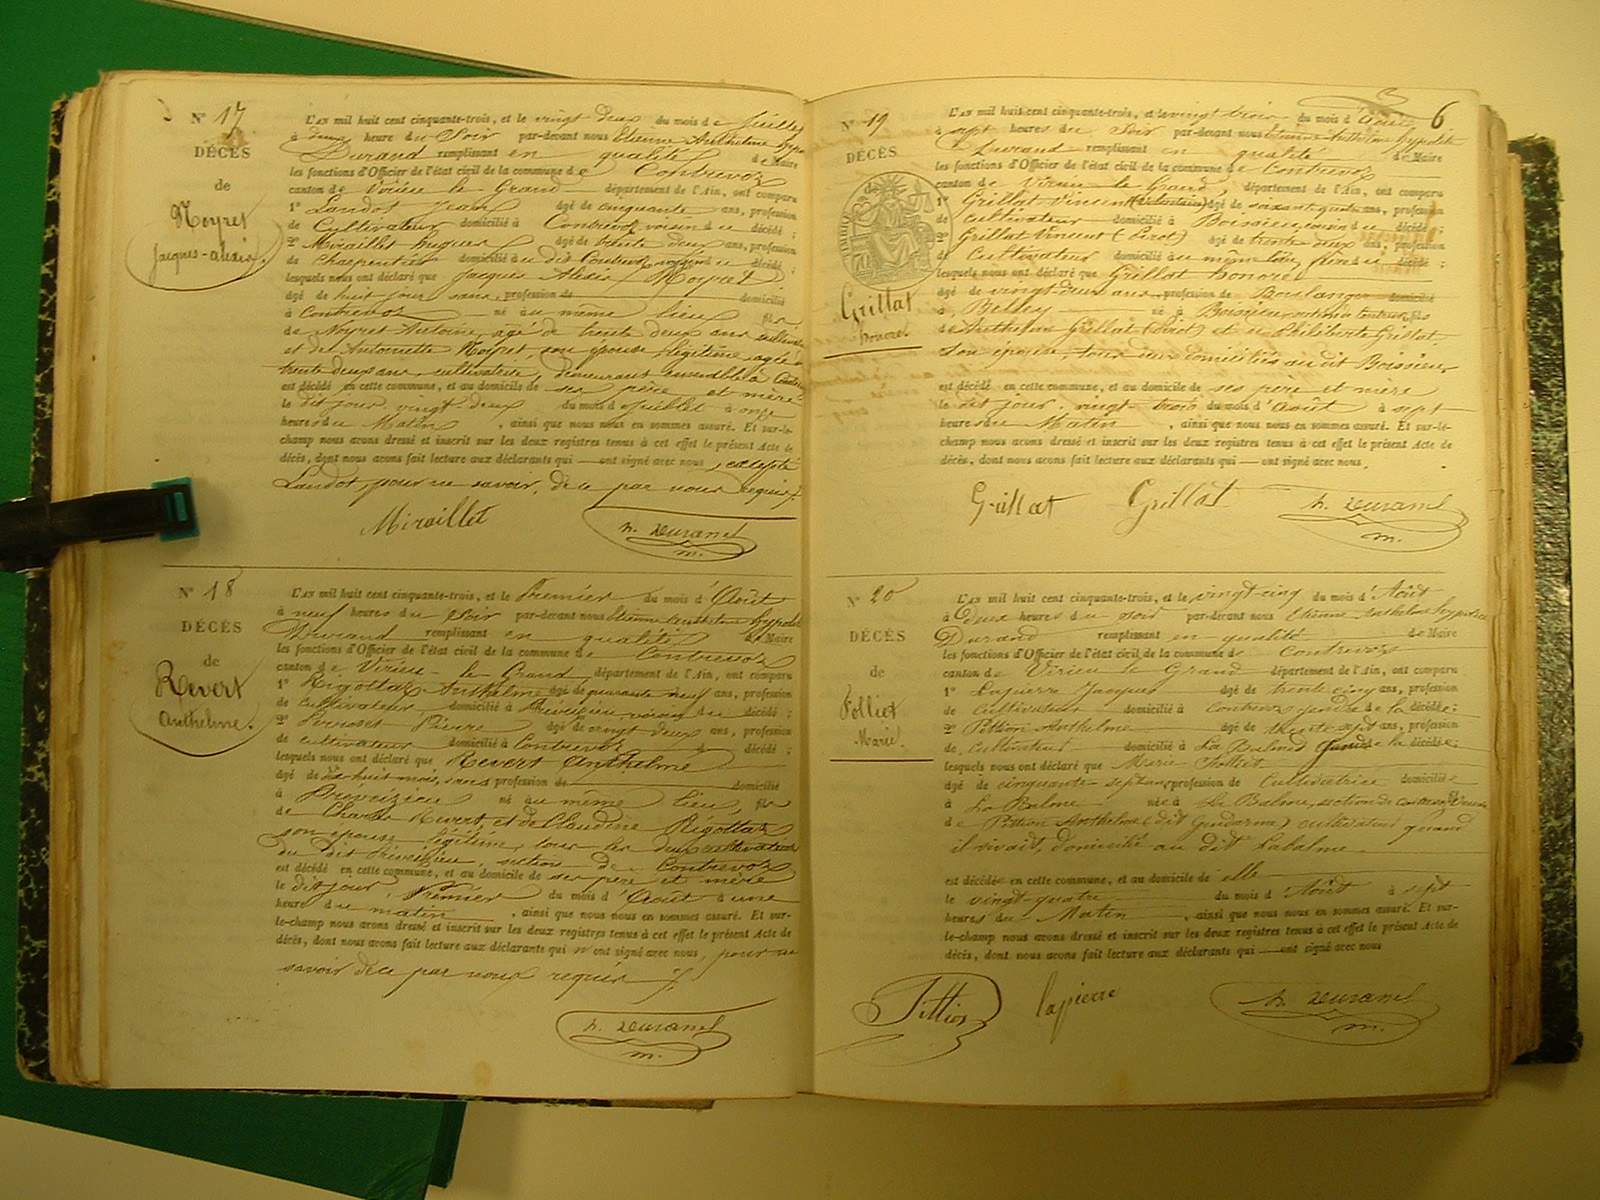 Nº 17
DÉCÈS
de
Noyret
Jacques-alexis.
L'AN mil huit cent cinquante-trois, et le vingt deux du mois de Juillet
à deux heure du Soir par-devant nous Etienne Anthelme Hypo
Durand remplissant en qualité de Maire
les fonctions d'Officier de l'état civil de la commune de Contrevoz
canton de Virieu le Grand département de l'Ain, ont comparu
1º Landot Jean âgé de cinquante ans, profession
de Cultivateur domicilié à Contrevoz voisin du décédé ;
2º Miraillet hugues âgé de trente deux ans, profession
de Charpentier domicilié au dit Contrevoz voisin du décédé ;
lesquels nous ont déclaré que Jacques Alexis Noyret
âgé de huit jour sans, profession de domicilié
à Contrevoz né au même lieu fils
de Noyret Antoine, âgé de trente deux ans cultivate
et de Antoinette Noyret, son épouse légitime, agée de
trente deux ans, cultivatrice, demeurant ensemble à Contrev
est décédé en cette commune, et au domicile de ses père et mère
le dit jour vingt-deux du mois de Juillet à onze
heures du Matin, ainsi que nous nous en sommes assuré. Et sur-le-
champ nous avons dressé et inscrit sur les deux registres tenus à cet effet le présent Acte de
décès, dont nous avons fait lecture aux déclarants qui ont signé avec nous, excepté
Landot, pour ne savoir, de ce par nous requis.
Miraillet h. Durand
m.
Nº 18
DÉCÈS
de
Revert
anthelme.
L'AN mil huit cent cinquante-trois, et le Premier du mois d'Août
à neuf heures du Soir par-devant nous Etienne Anthelme hypolit
Durand remplissant en qualité de Maire
les fonctions d'Officier de l'état civil de la commune de Contrevoz
canton de Virieu-le Grand, département de l'Ain, ont comparu
1º Rigottaz Anthelme âgé de quarante neuf ans, profession
de cultivateur domicilié à Préveizieu voisin du décédé ;
2º Pierre âgé de vingt deux ans, profession
de cultivateur domicilié à Contrevoz d décédé ;
lesquels nous ont déclaré que Revert Anthelme
âgé de dix huit mois, sans profession de domicilié
à Préveizieu né au même lieu, fils
de Charles Revert, et de Claudine Rigottaz
son épouse légitime, tous les deux cultivateurs
du dit Préveizieu, section de Contrevoz
est décédé en cette commune, et au domicile de ses père et mère
le dit jour Premier du mois d'Août à une
heure du matin, ainsi que nous nous en sommes assuré. Et sur-
le-champ nous avons dressé et inscrit sur les deux registres tenus à cet effet le présent Acte de
décès, dont nous avons fait lecture aux déclarants qui n'ont signé avec nous, pour ne
savoir de ce par nous requis
h. Durand
m.
6
Nº 19
DÉCÈS
de
Grillat
honoré.
L'AN mil huit cent cinquante-trois, et le vingt trois du mois d'Août
à sept heures du Soir par-devant nous Etienne Anthelme hypolite
Durand remplissant en qualité de Maire
les fonctions d'Officier de l'état civil de la commune de Contrevoz
canton de Virieu le Grand, département de l'Ain, ont comparu
1º Grillat Vincent âgé de soixante quatre ans, profession
de cultivateur domicilié à Boissieu, cousin du décédé ;
2º Grillat Vincent âgé de trente deux ans, profession
de Cultivateur domicilié au même lieu, frère du décédé ;
lesquels nous ont déclaré que Grillat honoré
âgé de vingt-deux ans, profession de Boulanger domicilié
à Belley né à Boissieu, section de Contrevoz, fils
de Anthelme Grillat et de Philiberte Grillat,
son épouse, tous deux domiciliés au dit Boissieu,
est décédé en cette commune, et au domicile de ses père et mère
le dit jour vingt-trois du mois d'Août à sept
heures du Matin, ainsi que nous nous en sommes assuré. Et sur-le-
champ nous avons dressé et inscrit sur les deux registres tenus à cet effet le présent Acte de
décès, dont nous avons fait lecture aux déclarants qui ont signé avec nous.
Grillat Grillat h. Durand
m.
Nº 20
DÉCÈS
de
Folliet
Marie.
L'AN mil huit cent cinquante-trois, et le vingt-cinq du mois d'Août
à deux heures du soir par-devant nous Etienne Anthelme hypolite
Durand remplissant en qualité de Maire
les fonctions d'Officier de l'état civil de la commune de Contrevoz
canton de Virieu le Grand département de l'Ain, ont comparu
1º Lapierre Jacques âgé de trente cinq ans, profession
de Cultivateur domicilié à Contrevoz gendre de la décédée ;
2º Pittion Anthelme âgé de trente sept ans, profession
de Cultivateur domicilié à La Balme de la décédée ;
lesquels nous ont déclaré que Marie Folliet
âgé de cinquante-sept ans, profession de Cultivatrice domiciliée
à La Balme née à La Balme, section de Contrevoz
de Pittion Anthelme (dit Gendarme) cultivateur quand
il vivait, domicilié au dit Labalme.
est décédée en cette commune, et au domicile de elle
le vingt-quatre du mois d'Août à sept
heures du Matin, ainsi que nous nous en sommes assuré. Et sur-
le-champ nous avons dressé et inscrit sur les deux registres tenus à cet effet le présent Acte de
décès, dont nous avons fait lecture aux déclarants qui ont signé avec nous
Pittion lapierre h. Durand
m.